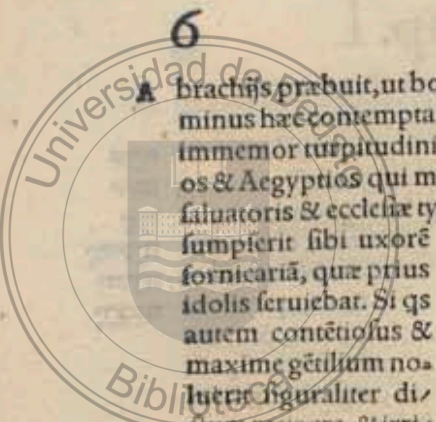 6
A brachijs præbuit, ut bo
minus hæc contempta
immemor turpitudini
os & Aegyptios qui m
saluatoris & ecclesiæ ty
sumpserit sibi uxorē
fornicariā, quæ prius
idolis seruiebat. Si qs
autem contētiosus &
maxime gētilium no⸗
luerit figuraliter di⸗
Universidad de Deusto
Biblioteca